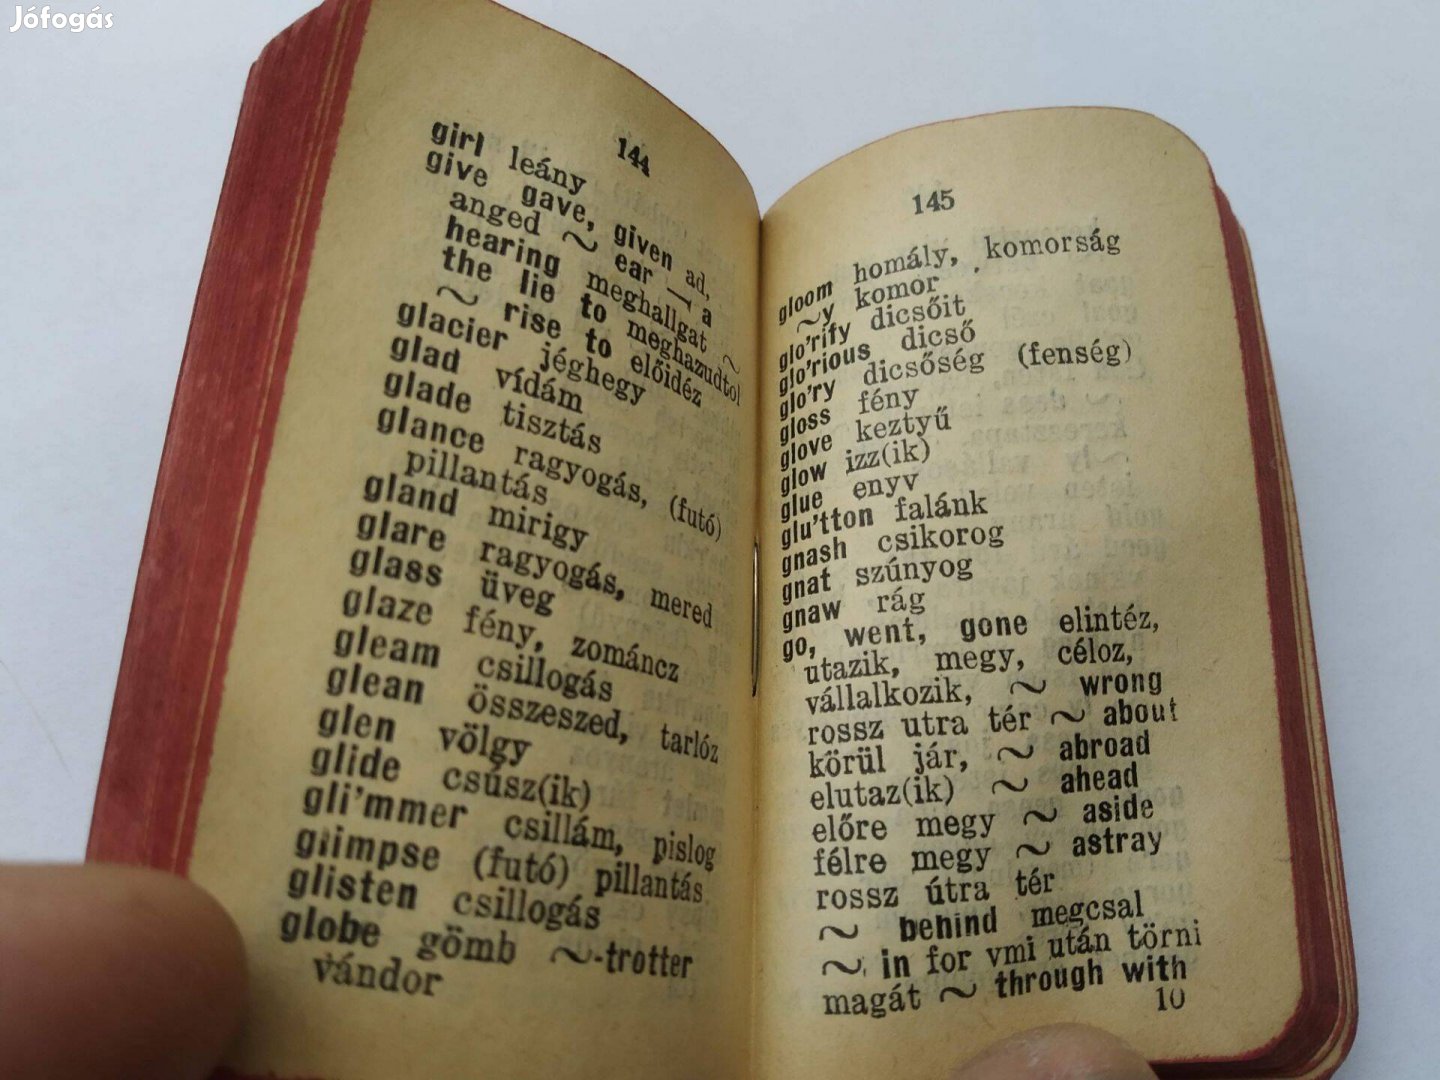 Jófogás
144
girl leány
give gave, given ad,
anged ~ ear — a
hearing meghallgat ~
the lie to meghazudtol
~ rise to előidéz
glacier jéghegy
glad vídám
glade tisztás
glance ragyogás, (futó)
pillantás
gland mirigy
glare ragyogás, mered
glass üveg
glaze fény, zománcz
gleam csillogás
glean összeszed, tarlóz
glen völgy
glide csúsz(ik)
gli'mmer csillám, pislog
glimpse (futó) pillantás
glisten csillogás
globe gömb ~-trotter
vándor
145
gloom homály, komorság
~y komor
glo'rify dicsőit
glo'rious dicső
glo'ry dicsőség (fenség)
gloss fény
glove keztyű
glow izz(ik)
glue enyv
glu'tton falánk
gnash csikorog
gnat szúnyog
gnaw rág
go, went, gone elintéz,
utazik, megy, céloz,
vállalkozik, ~ wrong
rossz utra tér ~ about
körül jár, ~ abroad
elutaz(ik) ~ ahead
előre megy ~ aside
félre megy ~ astray
rossz útra tér
~ behind megcsal
~ in for vmi után törni
magát ~ through with
10